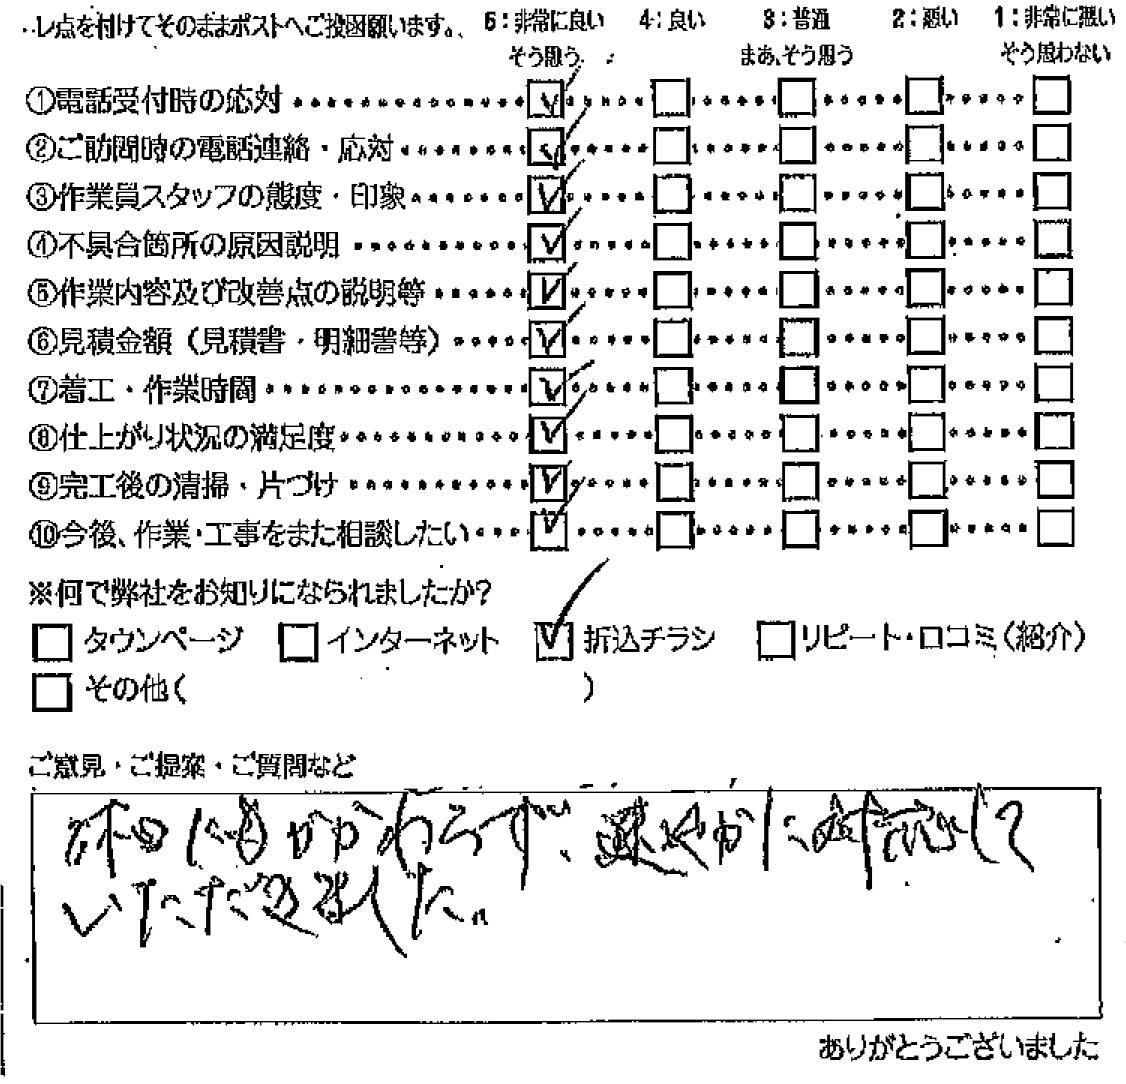 レ点を付けてそのままポストへご投函願います。 5:非常に良い 4:良い 3:普通 2:悪い 1:非常に悪い
そう思う まあ、そう思う そう思わない
①電話受付時の応対
②ご訪問時の電話連絡・応対
③作業員スタッフの態度・印象
④不具合箇所の原因説明
⑤作業内容及び改善点の説明等
⑥見積金額(見積書・明細書等)
⑦着工・作業時間
⑧仕上がり状況の満足度
⑨完工後の清掃・片づけ
⑩今後、作業・工事をまた相談したい
※何で弊社をお知りになられましたか?
タウンページ インターネット 折込チラシ リピート・口コミ(紹介)
その他( )
ご意見・ご提案・ご質問など
休日にもかかわらず、速やかに対応して
いただきました。
ありがとうございました